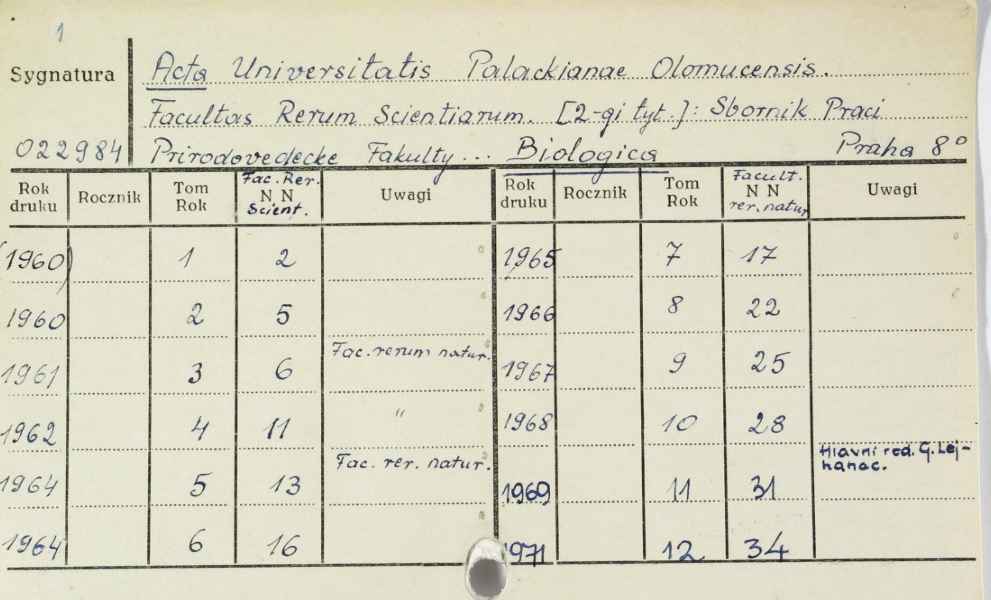 1
Sygnatura Acta Universitatis Palackianae Olomucensis.
Facultas Rerum Scientiarum. [2-gi tyt.]: Sbornik Praci
022984 Prirodovedecke Fakulty... Biologica Praha 8°
Rok druku Rocznik Tom Rok Fac. Rer. N N Scient. Uwagi Rok druku Rocznik Tom Rok Facult. N N rer. natur. Uwagi
(1960) 1 2 1965 7 17
1960 2 5 1966 8 22
1961 3 6 Fac. rerum natur. 1967 9 25
1962 4 11 " 1968 10 28
1964 5 13 Fac. rer. natur. 1969 11 31 Hlavní red. G. Lej-
hanac.
1964 6 16 1971 12 34